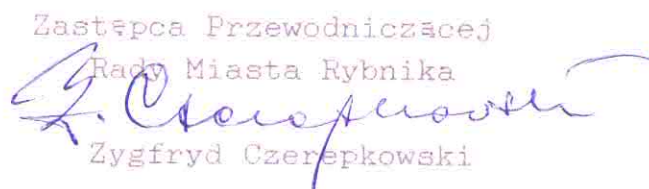 Zastępca Przewodniczącej
Rady Miasta Rybnika
Z. Czerepkowski
Zygfryd Czerepkowski